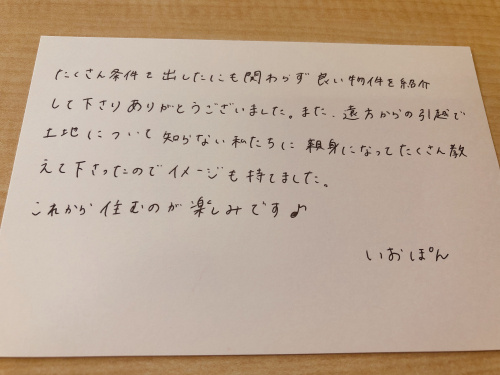 たくさん条件を出したにも関わらず良い物件を紹介
して下さりありがとうございました。また、遠方からの引越で
土地についても知らない私たちに親身になってたくさん教
えて下さったのでイメージも持てました。
これから住むのが楽しみです♪
いおぽん